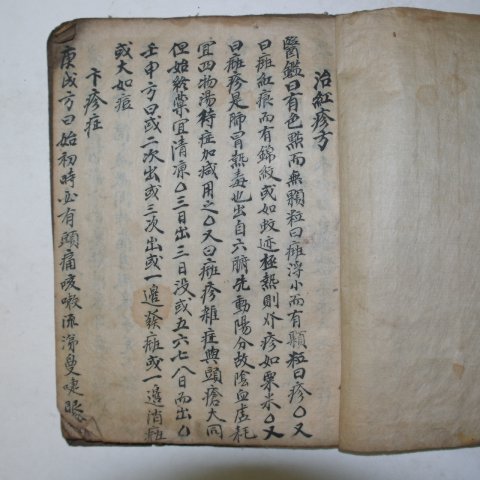 治紅疹方
醫鑑曰有色點而無顆粒曰癍浮小而有顆粒曰疹○又
曰癍紅痕而有錦紋或如蚊迹極熱則外疹如粟米○又
曰癍疹是肺胃熱毒也出自六腑先動陽分故陰血虛耗
宜四物湯待症加减用之○又曰癍疹雜症與頭瘡大同
但始終藥宜清凉○三日出三日没或五六七八日而出○
壬申方曰或二次出或三次出或一邊發癍或一邊消癍
或大如痕
卞疹症
庚戌方曰始初時必有頭痛咳嗽流涕㬅𠾱眼